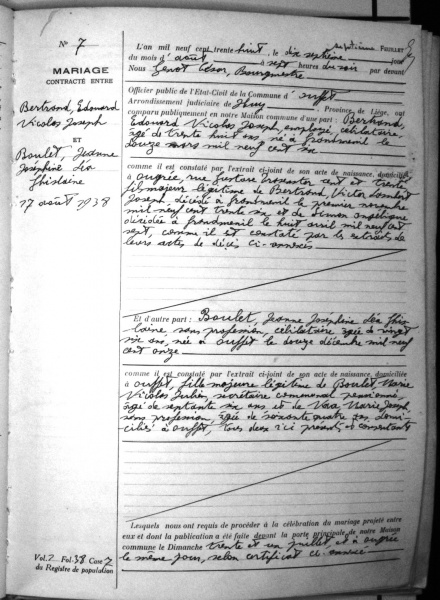 septième FEUILLET
N° 7
MARIAGE
CONTRACTÉ ENTRE
Bertrand, Edouard
Nicolas Joseph
ET
Boulet, Jeanne
Joséphine Léa
Ghislaine
17 août 1938
L'an mil neuf cent trente huit, le dix septième jour
du mois d'août à sept heures du soir par devant
Nous César, Bourgmestre
Officier public de l'Etat-Civil de la Commune d'Ouffet
Arrondissement judiciaire de Huy Province de Liége, ont
comparu publiquement en notre Maison commune d'une part : Bertrand,
Edouard Nicolas Joseph, employé, célibataire
âgé de trente deux ans, né à
douze mars mil neuf cent six
comme il est constaté par l'extrait ci-joint de son acte de naissance, domicilié
à Ougrée, rue Gustave cent et trente
fils majeur légitime de Bertrand, Victor Lambert
Joseph décédé à le premier novembre
mil neuf cent trente six, et de Simon Angélique
décédée à le huit avril mil neuf cent
sept, comme il est constaté par les extraits de
leurs actes de décès ci-annexés
Et d'autre part : Boulet, Jeanne Joséphine Léa Ghis-
laine, sans profession, célibataire âgée de vingt
six ans, née à Ouffet le douze décembre mil neuf
cent onze
comme il est constaté par l'extrait ci-joint de son acte de naissance, domiciliée
à Ouffet, fille majeure légitime de Boulet, Marie
Nicolas Julien, secrétaire communal pensionné,
âgé de septante six ans et de Marie Joseph,
sans profession, âgée de soixante quatre ans domi-
ciliés à Ouffet, tous deux ici présents et consentants
Lesquels nous ont requis de procéder à la célébration du mariage projeté entre
eux et dont la publication a été faite devant la porte principale de notre Maison
commune le Dimanche trente et un juillet et à Ougrée
le même jour, selon certificat ci-annexé
Vol. 2 Fol. 38 Case 2
du Registre de population